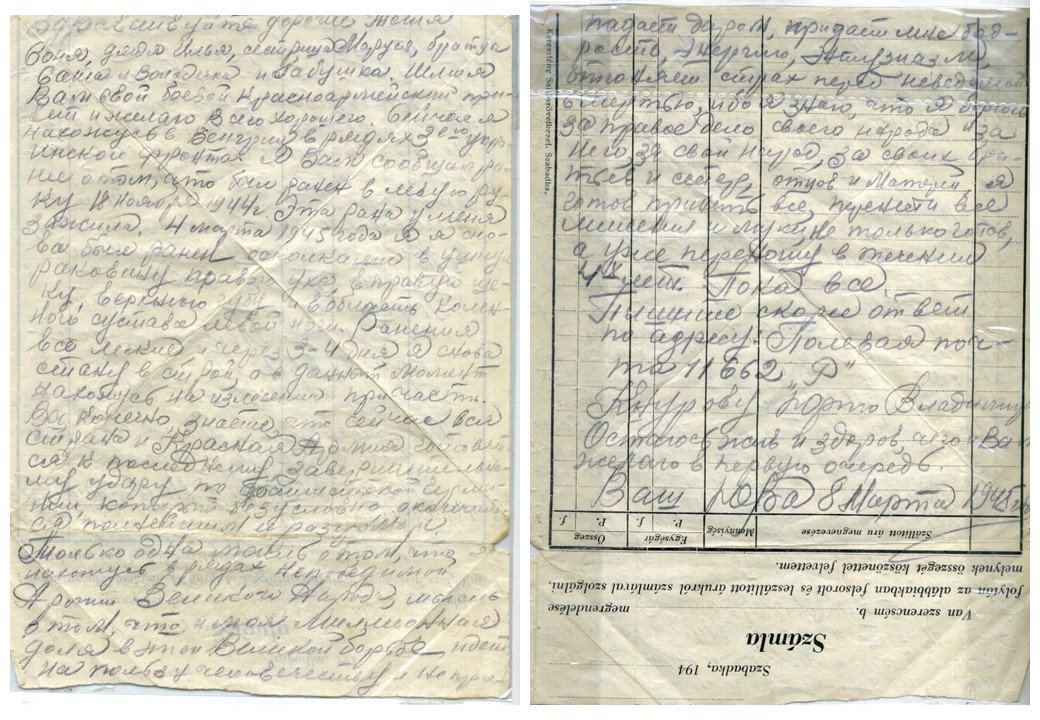 Здравствуйте дорогие тётя
Соня, дядя Илья, сестрица Маруся, братца
Ваня и Володька и Бабушка. Шлю я
Вам свой боевой Красноармейский при-
вет и желаю Всего хорошего. Сейчас я
нахожусь в Венгрии в рядах 3его Укра-
инского фронта. Я Вам сообщал ра-
нее о том, что был ранен в левую ру-
ку 18 ноября 1944г. Эта рана у меня
зажила. 4 марта 1945 года я я сно-
ва был ранен осколками в ушную
раковину правого уха, в правую ще-
ку, верхнюю губу и в область колен-
ного сустава левой ноги. Ранения
все легкие и через 3-4 дня я снова
стану в строй а в данный момент
нахожусь на излечении при части.
Вы конечно, знаете, что сейчас вся
страна и Красная Армия готовит-
ся к последнему, завершительно-
му удару по фашистской Герма-
нии, который безусловно окончит-
ся полнейшим разгромом
Только одна мысль о том, что я
нахожусь в рядах непобедимой
Армии Великого Народа, мысль
о том, что и моя Миллионная
доля в этой Великой борьбе идет
на пользу человечеству и не про-
падает даром, придает мне бод-
рость, Энергию, Энтузиазм,
отгоняет страх перед неведомой
смертью, ибо я знаю, что я борюсь
за правое дело своего народа и за
него, за свой народ, за своих бра-
тьев и сестер, отцов и Матерей, я
готов принять все, пренести все
лишения и муки, не только готов,
а уже переношу в течении
4х лет. Пока все.
Пишите скорее ответ
по адресу: Полевая поч-
та 11662 „Р"
Кнурову Юрию Владимир
Остаюсь жив и здоров, чего и Вам
желаю в первую очередь.
Ваш Юра 8 Марта 1945г.
Keresztény Szövetkezet, Szabadka.
Szabadka, 194
Számla
Van szerencsém b. megrendelése
folytán az alábbiakban felsorolt és leszállított árukról számlával szolgálni,
melynek összegét köszönettel felvettem.
Szállított áru megnevezése
Mennyiség
Egységár
P. f.
Összeg
P. f.